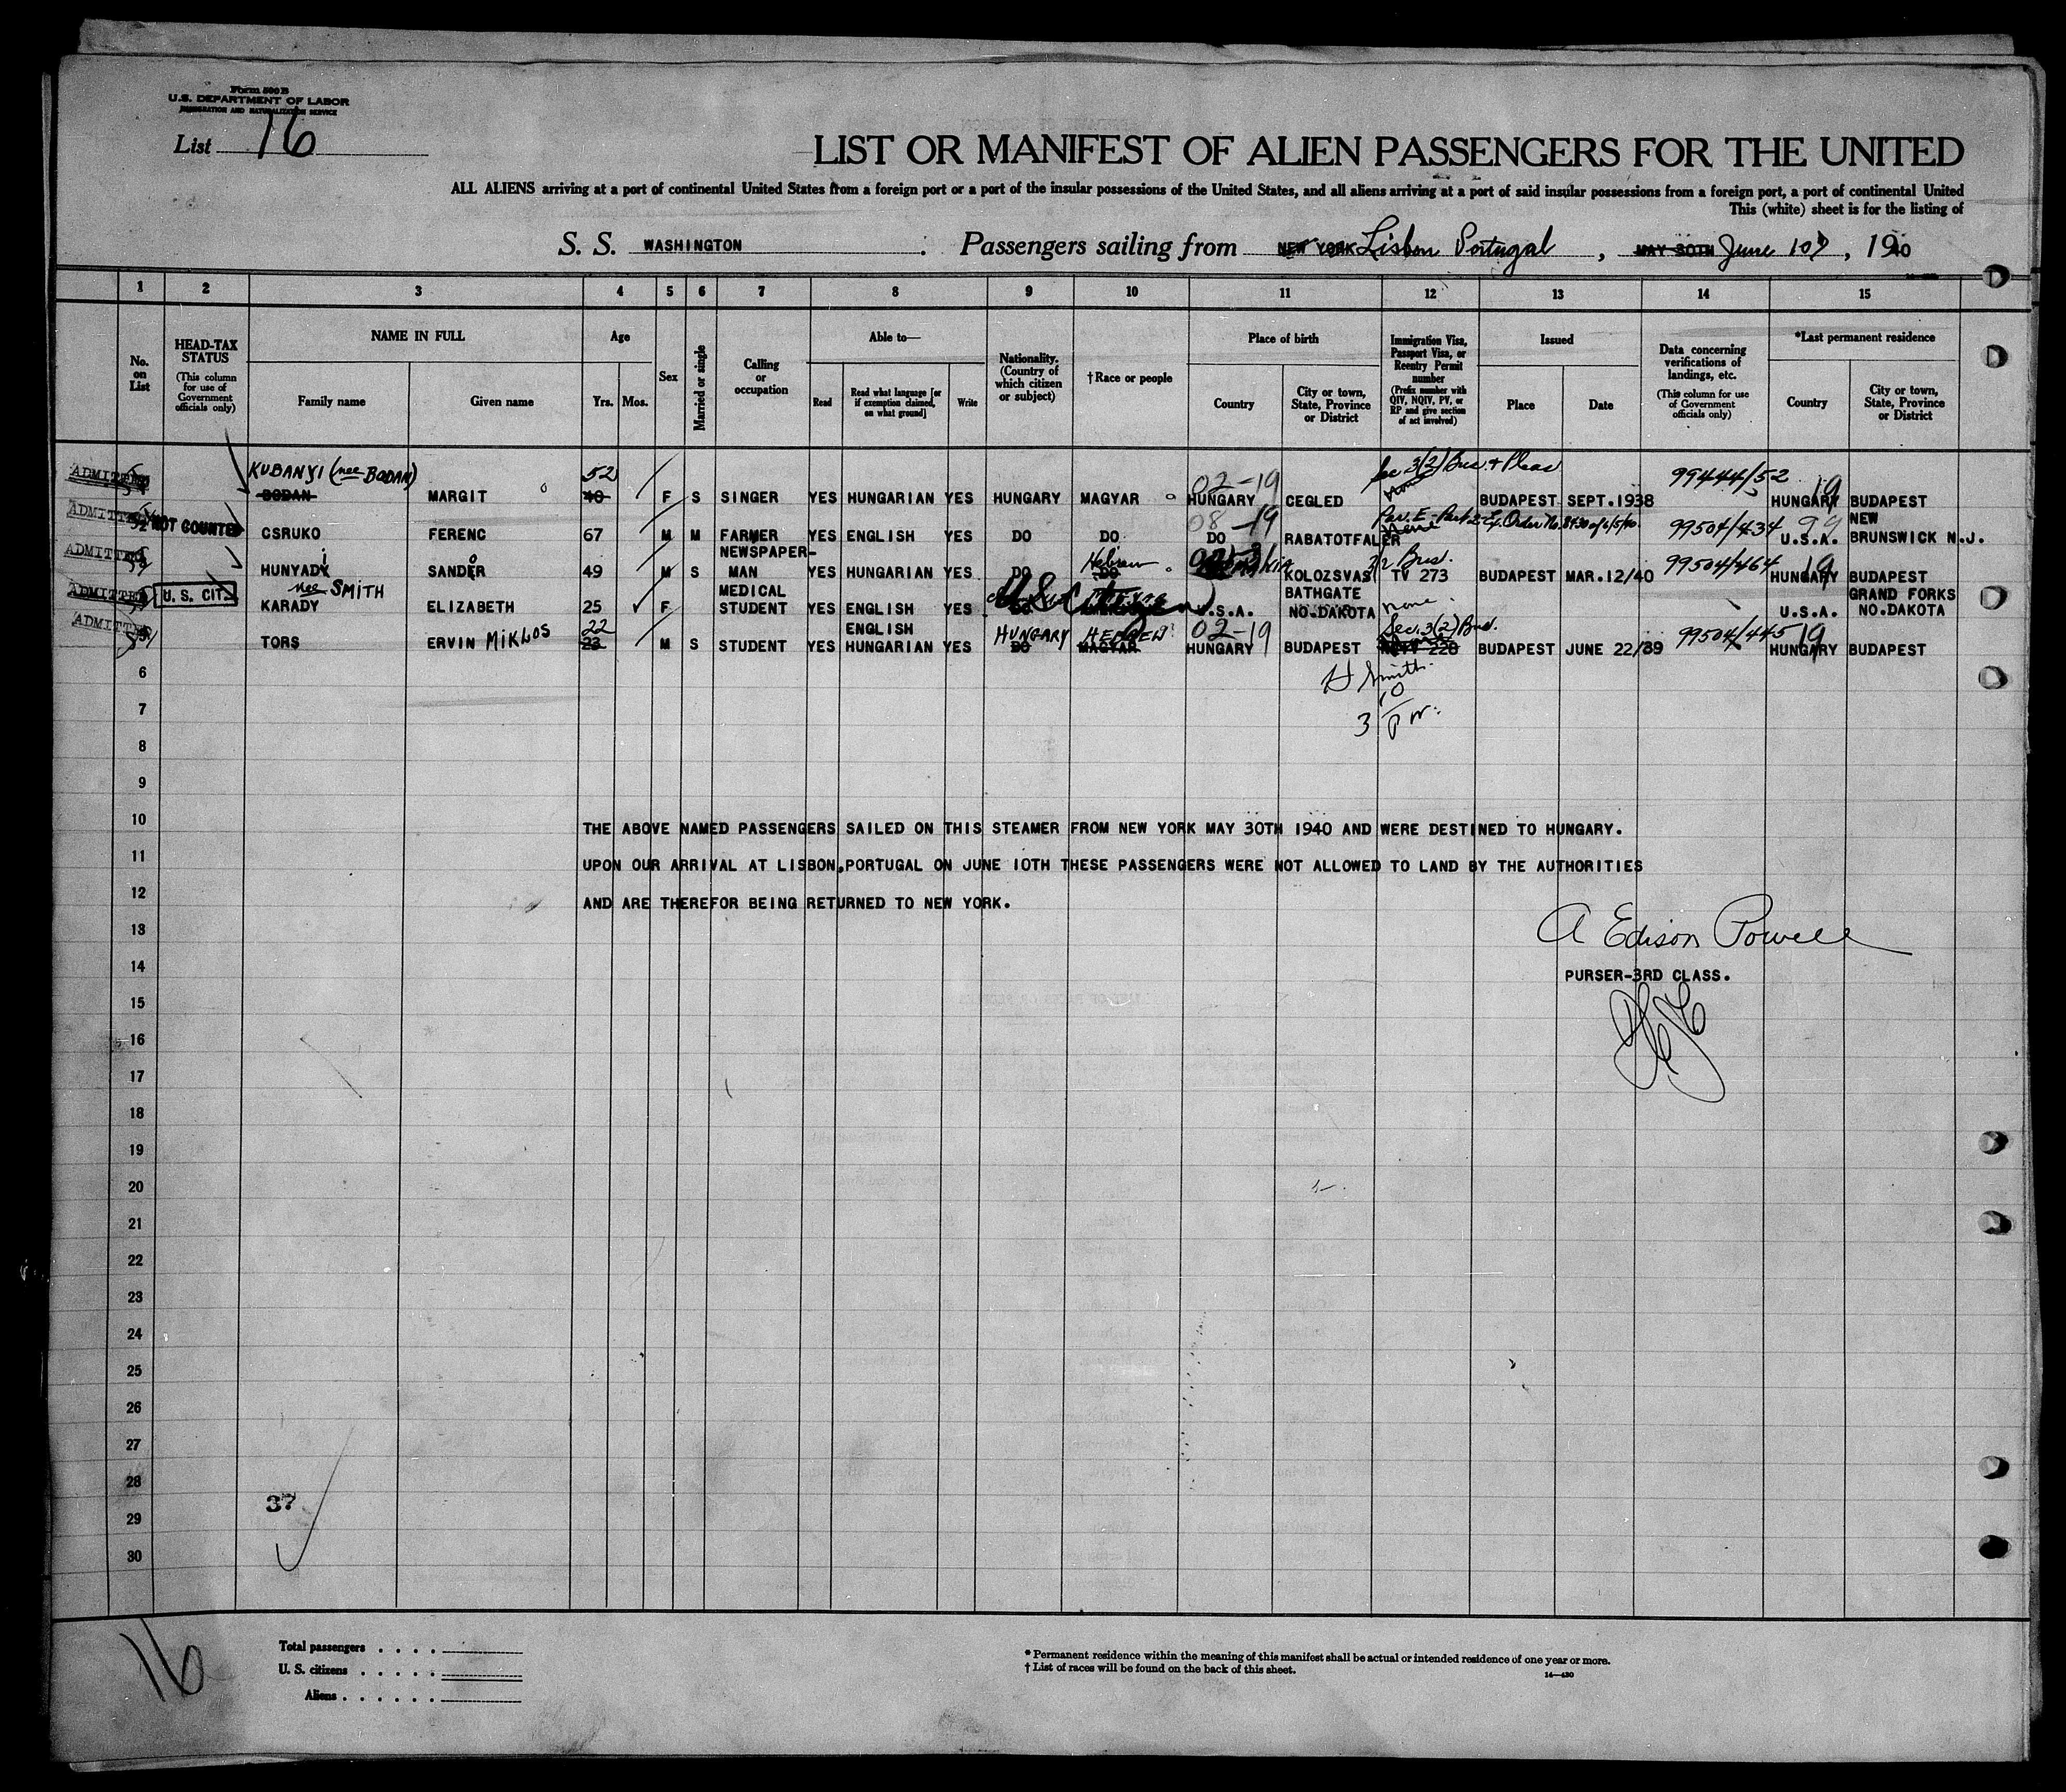 Form 500 B
U.S. DEPARTMENT OF LABOR
IMMIGRATION AND NATURALIZATION SERVICE
List 16
LIST OR MANIFEST OF ALIEN PASSENGERS FOR THE UNITED
ALL ALIENS arriving at a port of continental United States from a foreign port or a port of the insular possessions of the United States, and all aliens arriving at a port of said insular possessions from a foreign port, a port of continental United
This (white) sheet is for the listing of
S. S. WASHINGTON. Passengers sailing from NEW YORK Lisbon Portugal, MAY 30TH June 10, 1940
1 2 3 4 5 6 7 8 9 10 11 12 13 14 15
No. on List
HEAD-TAX STATUS (This column for use of Government officials only)
NAME IN FULL
Family name Given name
Age
Yrs. Mos.
Sex
Married or single
Calling or occupation
Able to—
Read
Read what language [or if exemption claimed, on what ground]
Write
Nationality. (Country of which citizen or subject)
†Race or people
Place of birth
Country
City or town, State, Province or District
Immigration Visa, Passport Visa, or Reentry Permit number (Prefix number with QIV, NQIV, PV, or RP and give section of act involved)
Issued
Place Date
Data concerning verifications of landings, etc. (This column for use of Government officials only)
*Last permanent residence
Country
City or town, State, Province or District
KUBANYI (nee BODAN) 52 02-19 Sec 3(2) Bus. + Pleas 99444/52 19
ADMITTED BODAN MARGIT 40 F S SINGER YES HUNGARIAN YES HUNGARY MAGYAR HUNGARY CEGLED none BUDAPEST SEPT.1938 HUNGARY BUDAPEST
08-19 Par. E-Part 2-Ex. Order No. 8430 of 6/5/40 99504/434 99 NEW
ADMITTED NOT COUNTED CSRUKO FERENC 67 M M FARMER YES ENGLISH YES DO DO DO RABATOTFALER None U.S.A. BRUNSWICK N.J.
NEWSPAPER- Hebrew 3/2 Bus. 99504/464 19
ADMITTED HUNYADY i SANDER o 49 M S MAN YES HUNGARIAN YES DO DO KOLOZSVAS TV 273 BUDAPEST MAR.12/40 HUNGARY BUDAPEST
nee SMITH MEDICAL U.S. Citizen BATHGATE GRAND FORKS
ADMITTED U. S. CIT. KARADY ELIZABETH 25 F STUDENT YES ENGLISH YES DO U.S.A. NO.DAKOTA none U.S.A. NO.DAKOTA
22 ENGLISH HUNGARY HEBREW 02-19 Sec. 3(2) Bus. 99504/445 19
ADMITTED TORS ERVIN MIKLOS 23 M S STUDENT YES HUNGARIAN YES DO MAGYAR HUNGARY BUDAPEST 228 BUDAPEST JUNE 22/39 HUNGARY BUDAPEST
6 H Smith
10
7 3
8
9
10 THE ABOVE NAMED PASSENGERS SAILED ON THIS STEAMER FROM NEW YORK MAY 30TH 1940 AND WERE DESTINED TO HUNGARY.
11 UPON OUR ARRIVAL AT LISBON,PORTUGAL ON JUNE 10TH THESE PASSENGERS WERE NOT ALLOWED TO LAND BY THE AUTHORITIES
12 AND ARE THEREFOR BEING RETURNED TO NEW YORK.
13 A Edison Powell
14 PURSER-3RD CLASS.
15
16
17
18
19
20
21
22
23
24
25
26
27
28
37
29
30
16
Total passengers . . . .
U. S. citizens . . . . .
Aliens . . . . . .
* Permanent residence within the meaning of this manifest shall be actual or intended residence of one year or more.
† List of races will be found on the back of this sheet.
14—430